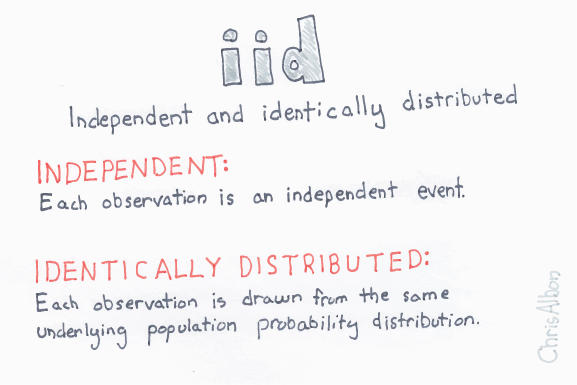 iid
Independent and identically distributed
INDEPENDENT:
Each observation is an independent event.
IDENTICALLY DISTRIBUTED:
Each observation is drawn from the same
underlying population probability distribution.
ChrisAlbon